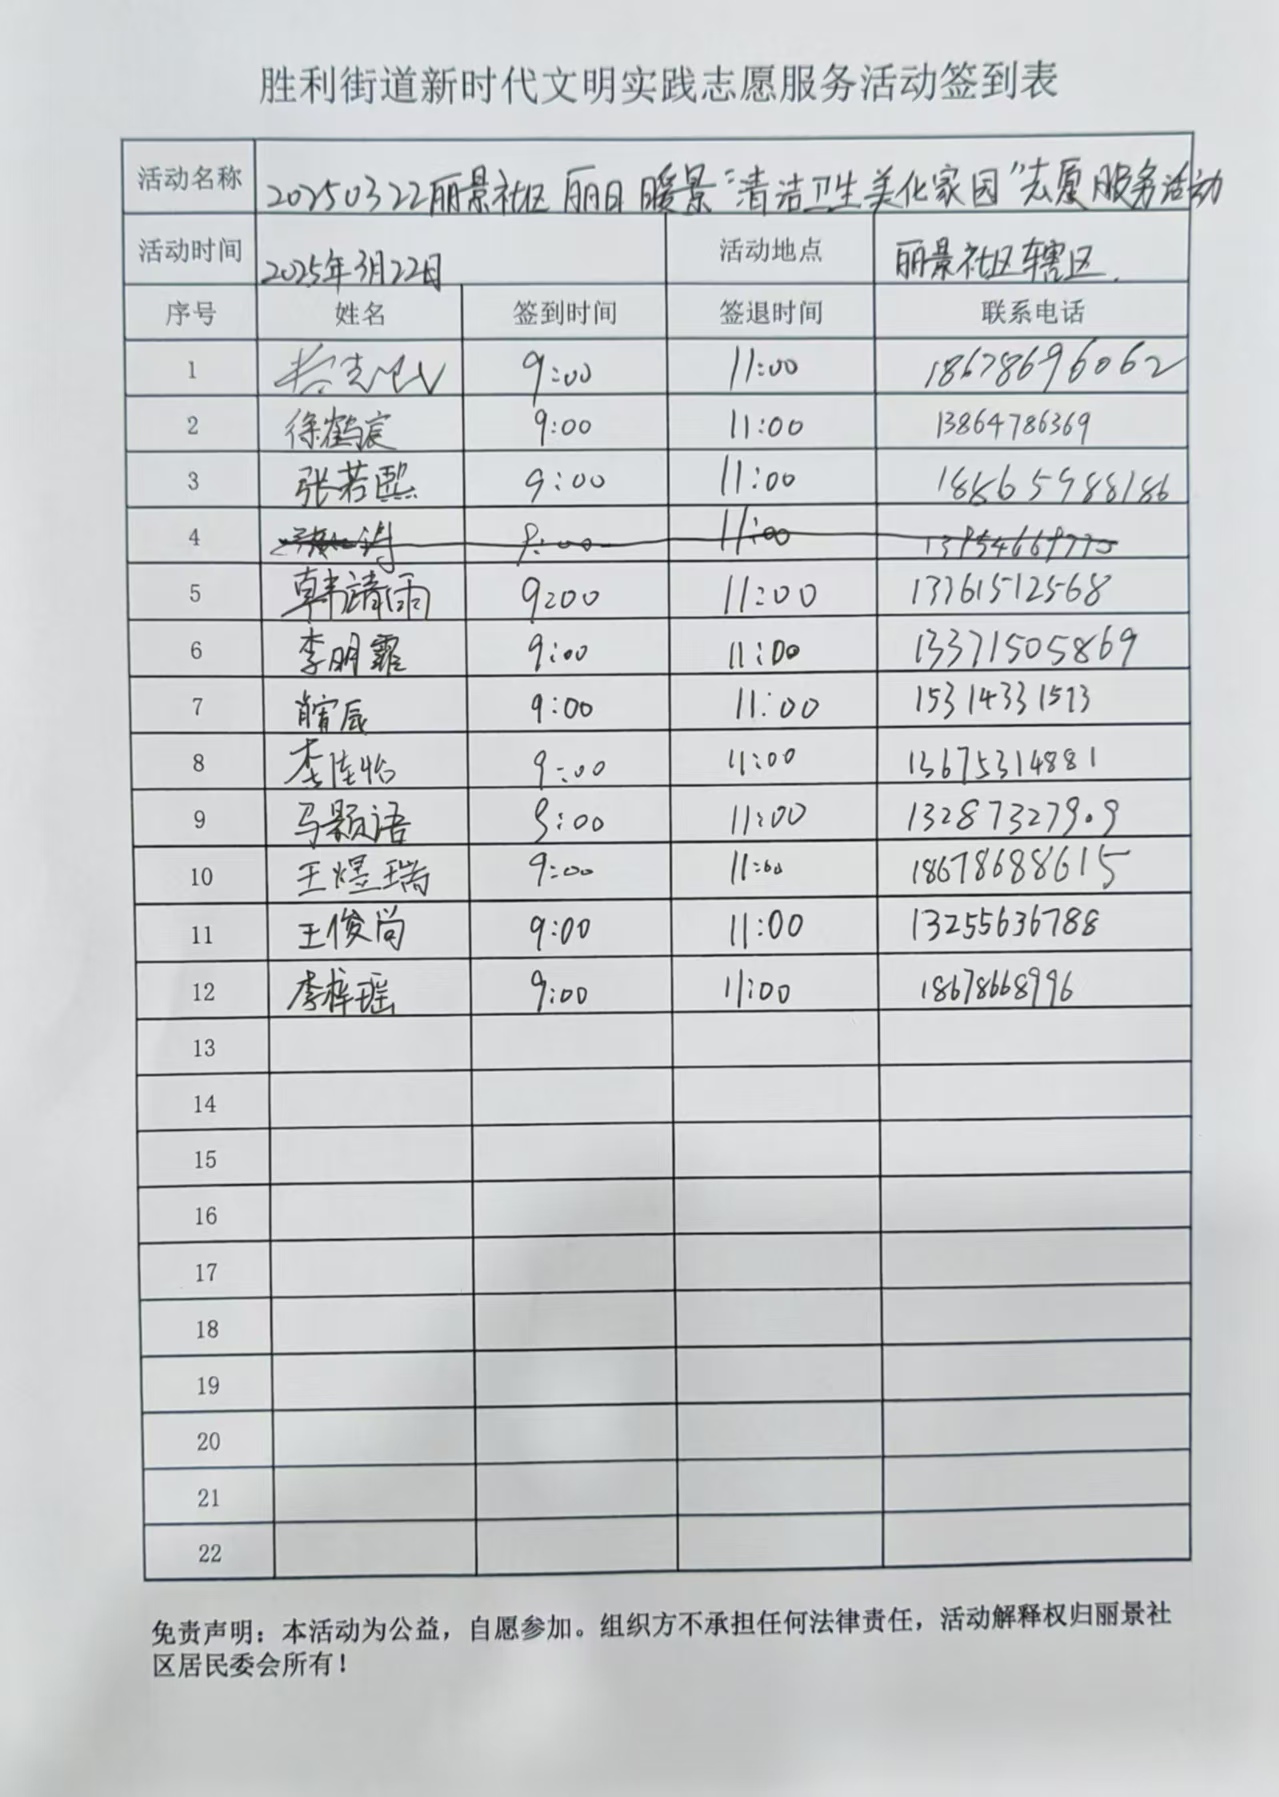 胜利街道新时代文明实践志愿服务活动签到表
活动名称 20250322丽景社区 丽日暖景“清洁卫生美化家园”志愿服务活动
活动时间 2025年3月22日 活动地点 丽景社区辖区.
序号 姓名 签到时间 签退时间 联系电话
1 9:00 11:00 18678696062
2 徐鹤宸 9:00 11:00 13864786369
3 张若熙 9:00 11:00 18865988186
4 11:00
5 韩靖雨 9:00 11:00 13761512568
6 李明霏 9:00 11:00 13371505869
7 肖宸 9:00 11:00 15314331513
8 李佳怡 9:00 11:00 13675314881
9 马颢语 9:00 11:00 13287327909
10 王煜瑞 9:00 11:00 18678688615
11 王俊尚 9:00 11:00 13255636788
12 李梓瑶 9:00 11:00 18678668996
13
14
15
16
17
18
19
20
21
22
免责声明：本活动为公益，自愿参加。组织方不承担任何法律责任，活动解释权归丽景社
区居民委会所有！